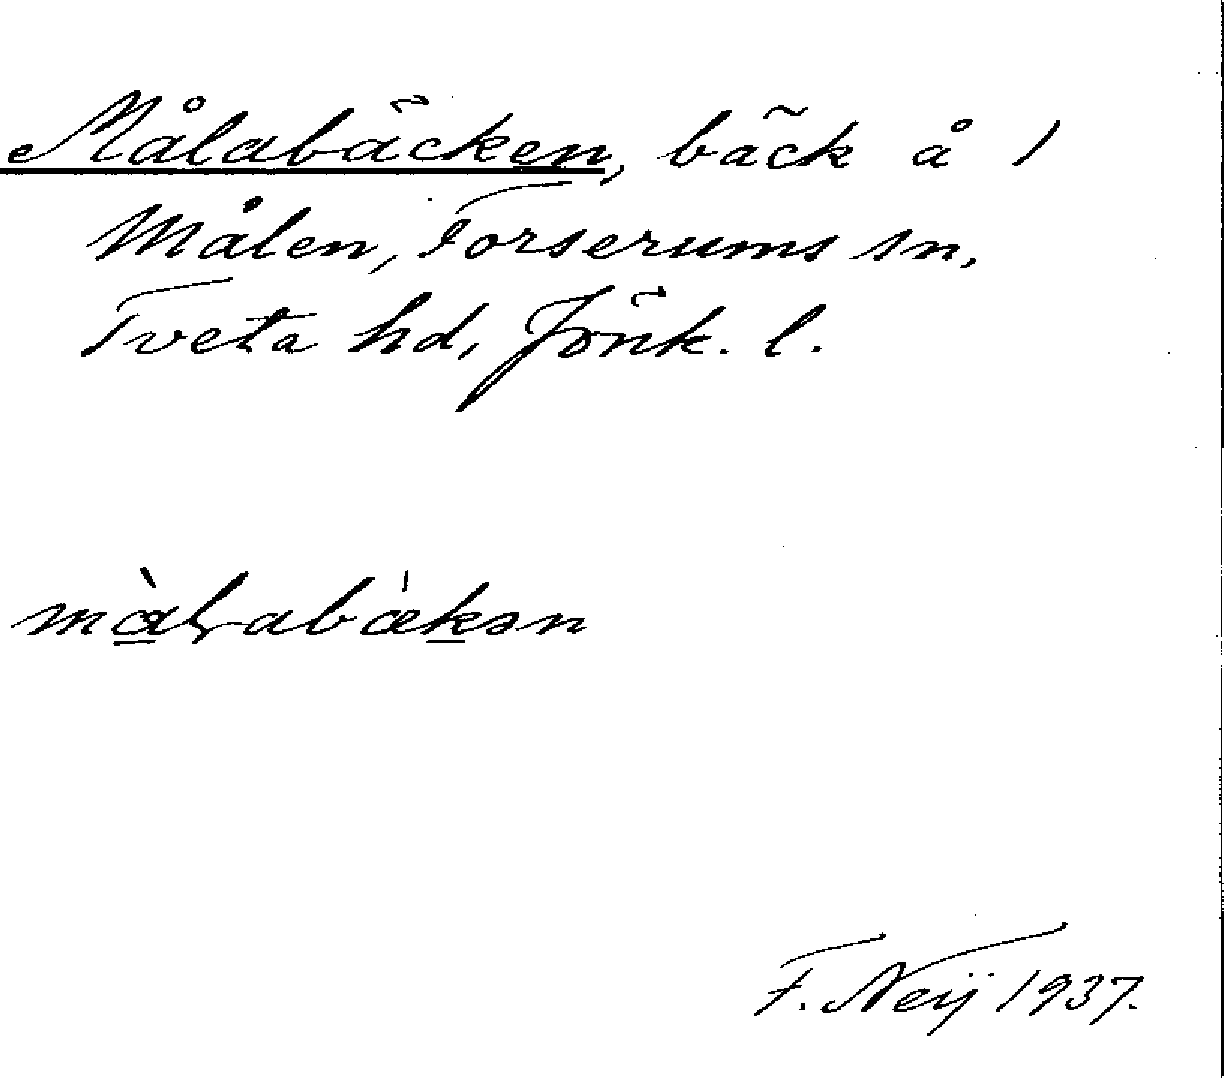 Målabäcken, bäck å 1
Målen, Forserums sn,
Tveta hd, Jönk. l.
F. Neij 1937.